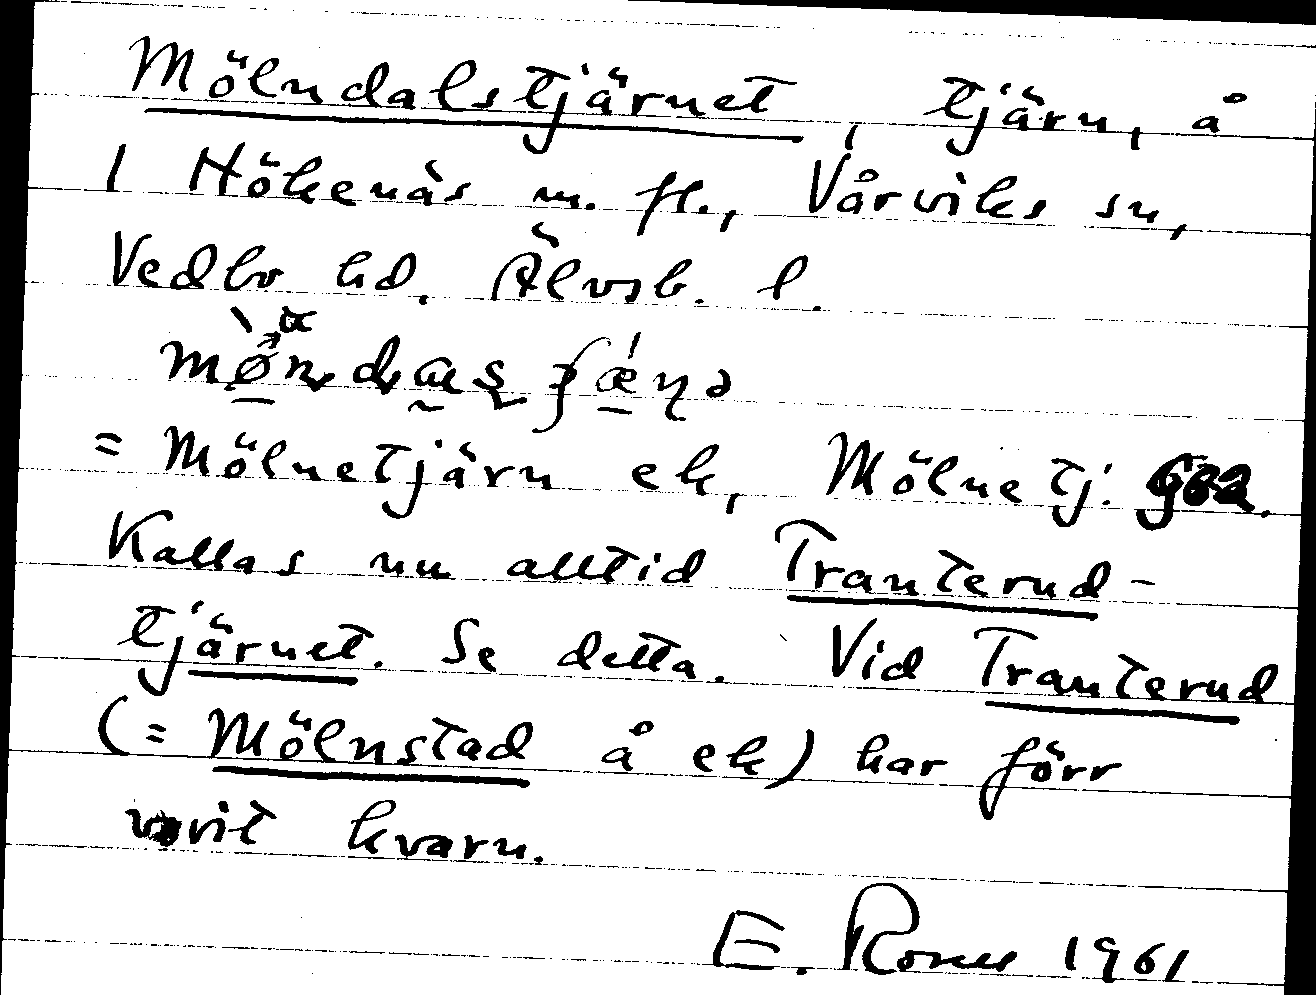 Mölndalstjärnet, tjärn, å
1 Hökenäs m. fl., Vårviks sn,
Vedbo hd. Älvsb. l.
= Mölnetjärn ek, Mölnetj. Gea.
Kallas nu alltid Tranterud-
tjärnet. Se detta. Vid Tranterud
(= Mölnstad å ek) har förr
varit kvarn.
E. 1961